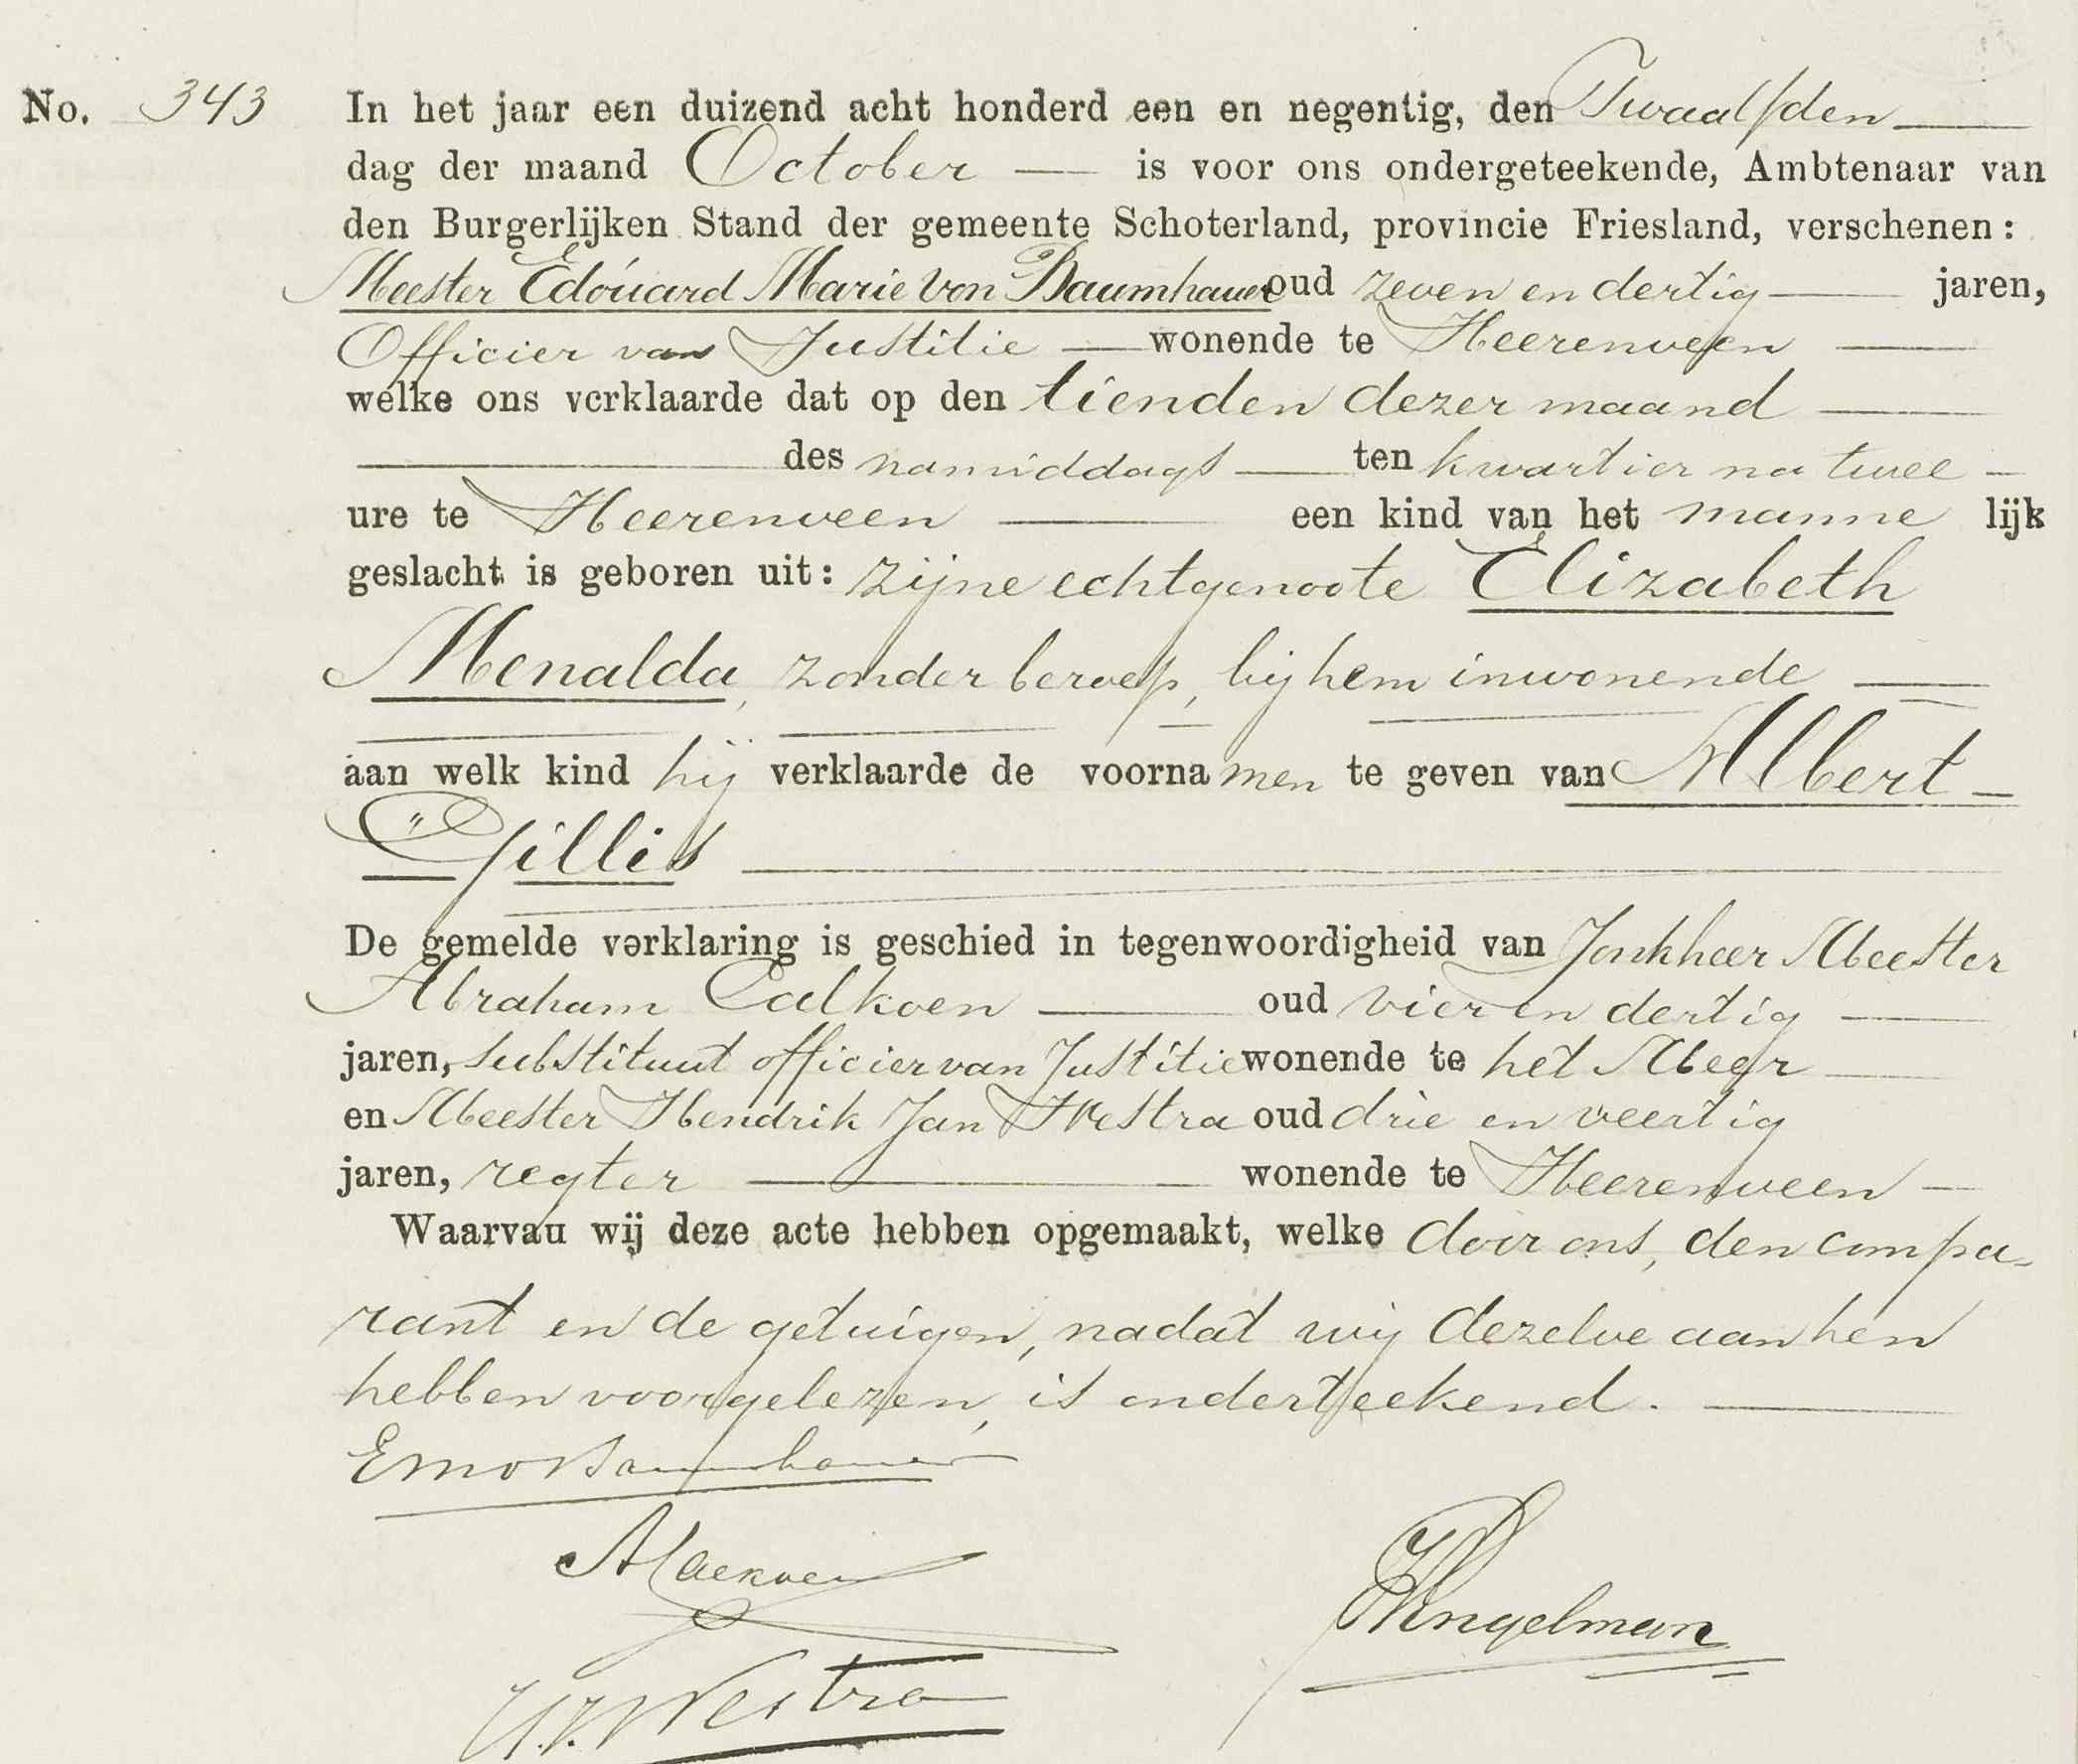 No. 343 In het jaar een duizend acht honderd een en negentig, den Twaalfden
dag der maand October is voor ons ondergeteekende, Ambtenaar van
den Burgerlijken Stand der gemeente Schoterland, provincie Friesland, verschenen:
Meester Edouard Marie von Baumhauer oud zeven en dertig jaren,
Officier van Justitie wonende te Heerenveen
welke ons verklaarde dat op den tienden dezer maand
des namiddags ten kwartier na twee
ure te Heerenveen een kind van het manne lijk
geslacht is geboren uit: zijne echtgenoote Elizabeth
Menalda, zonder beroep, bij hem inwonende
aan welk kind hij verklaarde de voornamen te geven van Albert
Gillis
De gemelde verklaring is geschied in tegenwoordigheid van Jonkheer Meester
Abraham Calkoen oud vier en dertig
jaren, substituut officier van Justitie wonende te het Meer
en Meester Hendrik Jan Westra oud drie en veertig
jaren, regter wonende te Heerenveen
Waarvan wij deze acte hebben opgemaakt, welke door ons, den compa-
rant en de getuigen, nadat wij dezelve aan hen
hebben voorgelezen, is onderteekend.
EMvBaumhauer
ACalkoen
Engelman
H.J. Westra